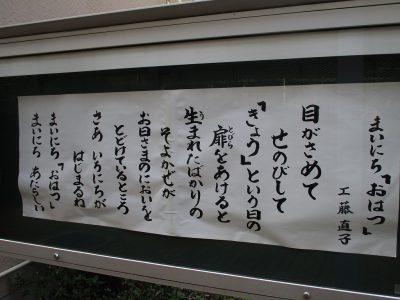 まいにち「おはつ」
工藤直子
目がさめて
せのびして
「きょう」という日の
扉をあけると
とびら
生まれたばかりの
う
そよかぜが
お日さまのにおいを
とどけているところ
さあ いちにちが
はじまるね
まいにち「おはつ」
まいにち あたらしい